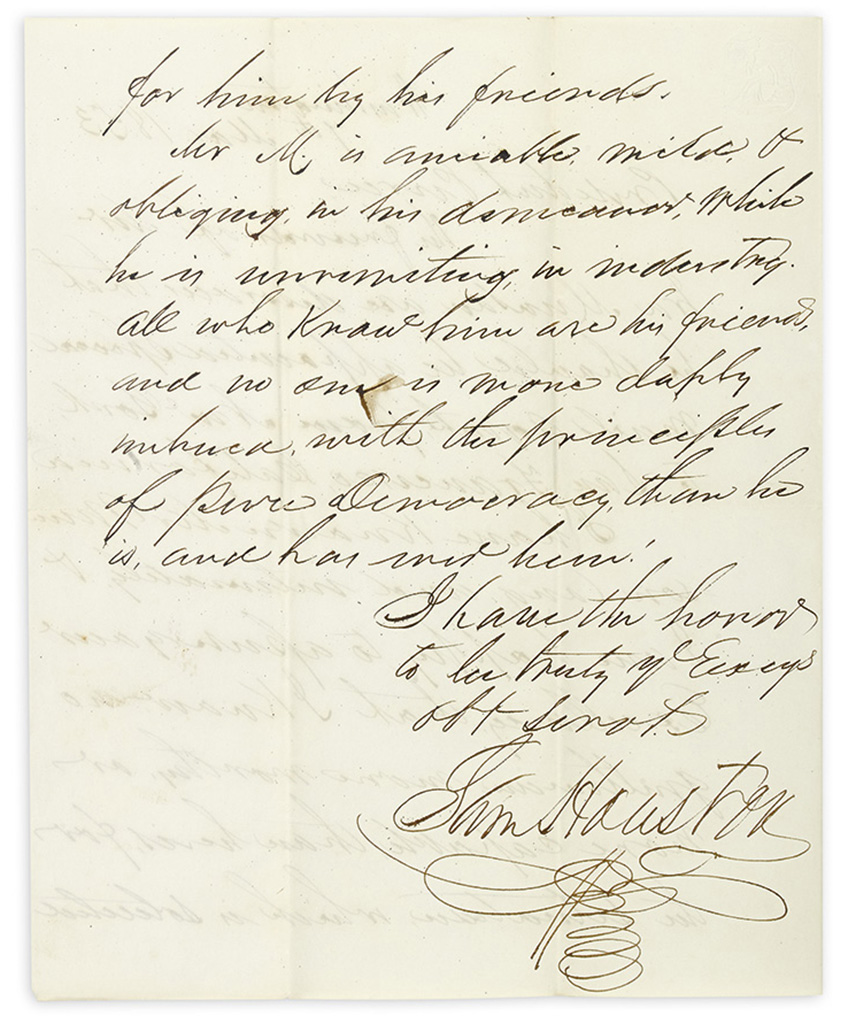 for him by his friends.
Mr M. is amiable, mild, &
obliging, in his demeanor, while
he is unremiting, in industry.
all who Know him are his friends,
and no one is more daply
imbued, with the principles
of pure Democracy, than he
is, and has ever been!
I have the honor
to be truly yr Excys
obt Servt.
Sam Houston